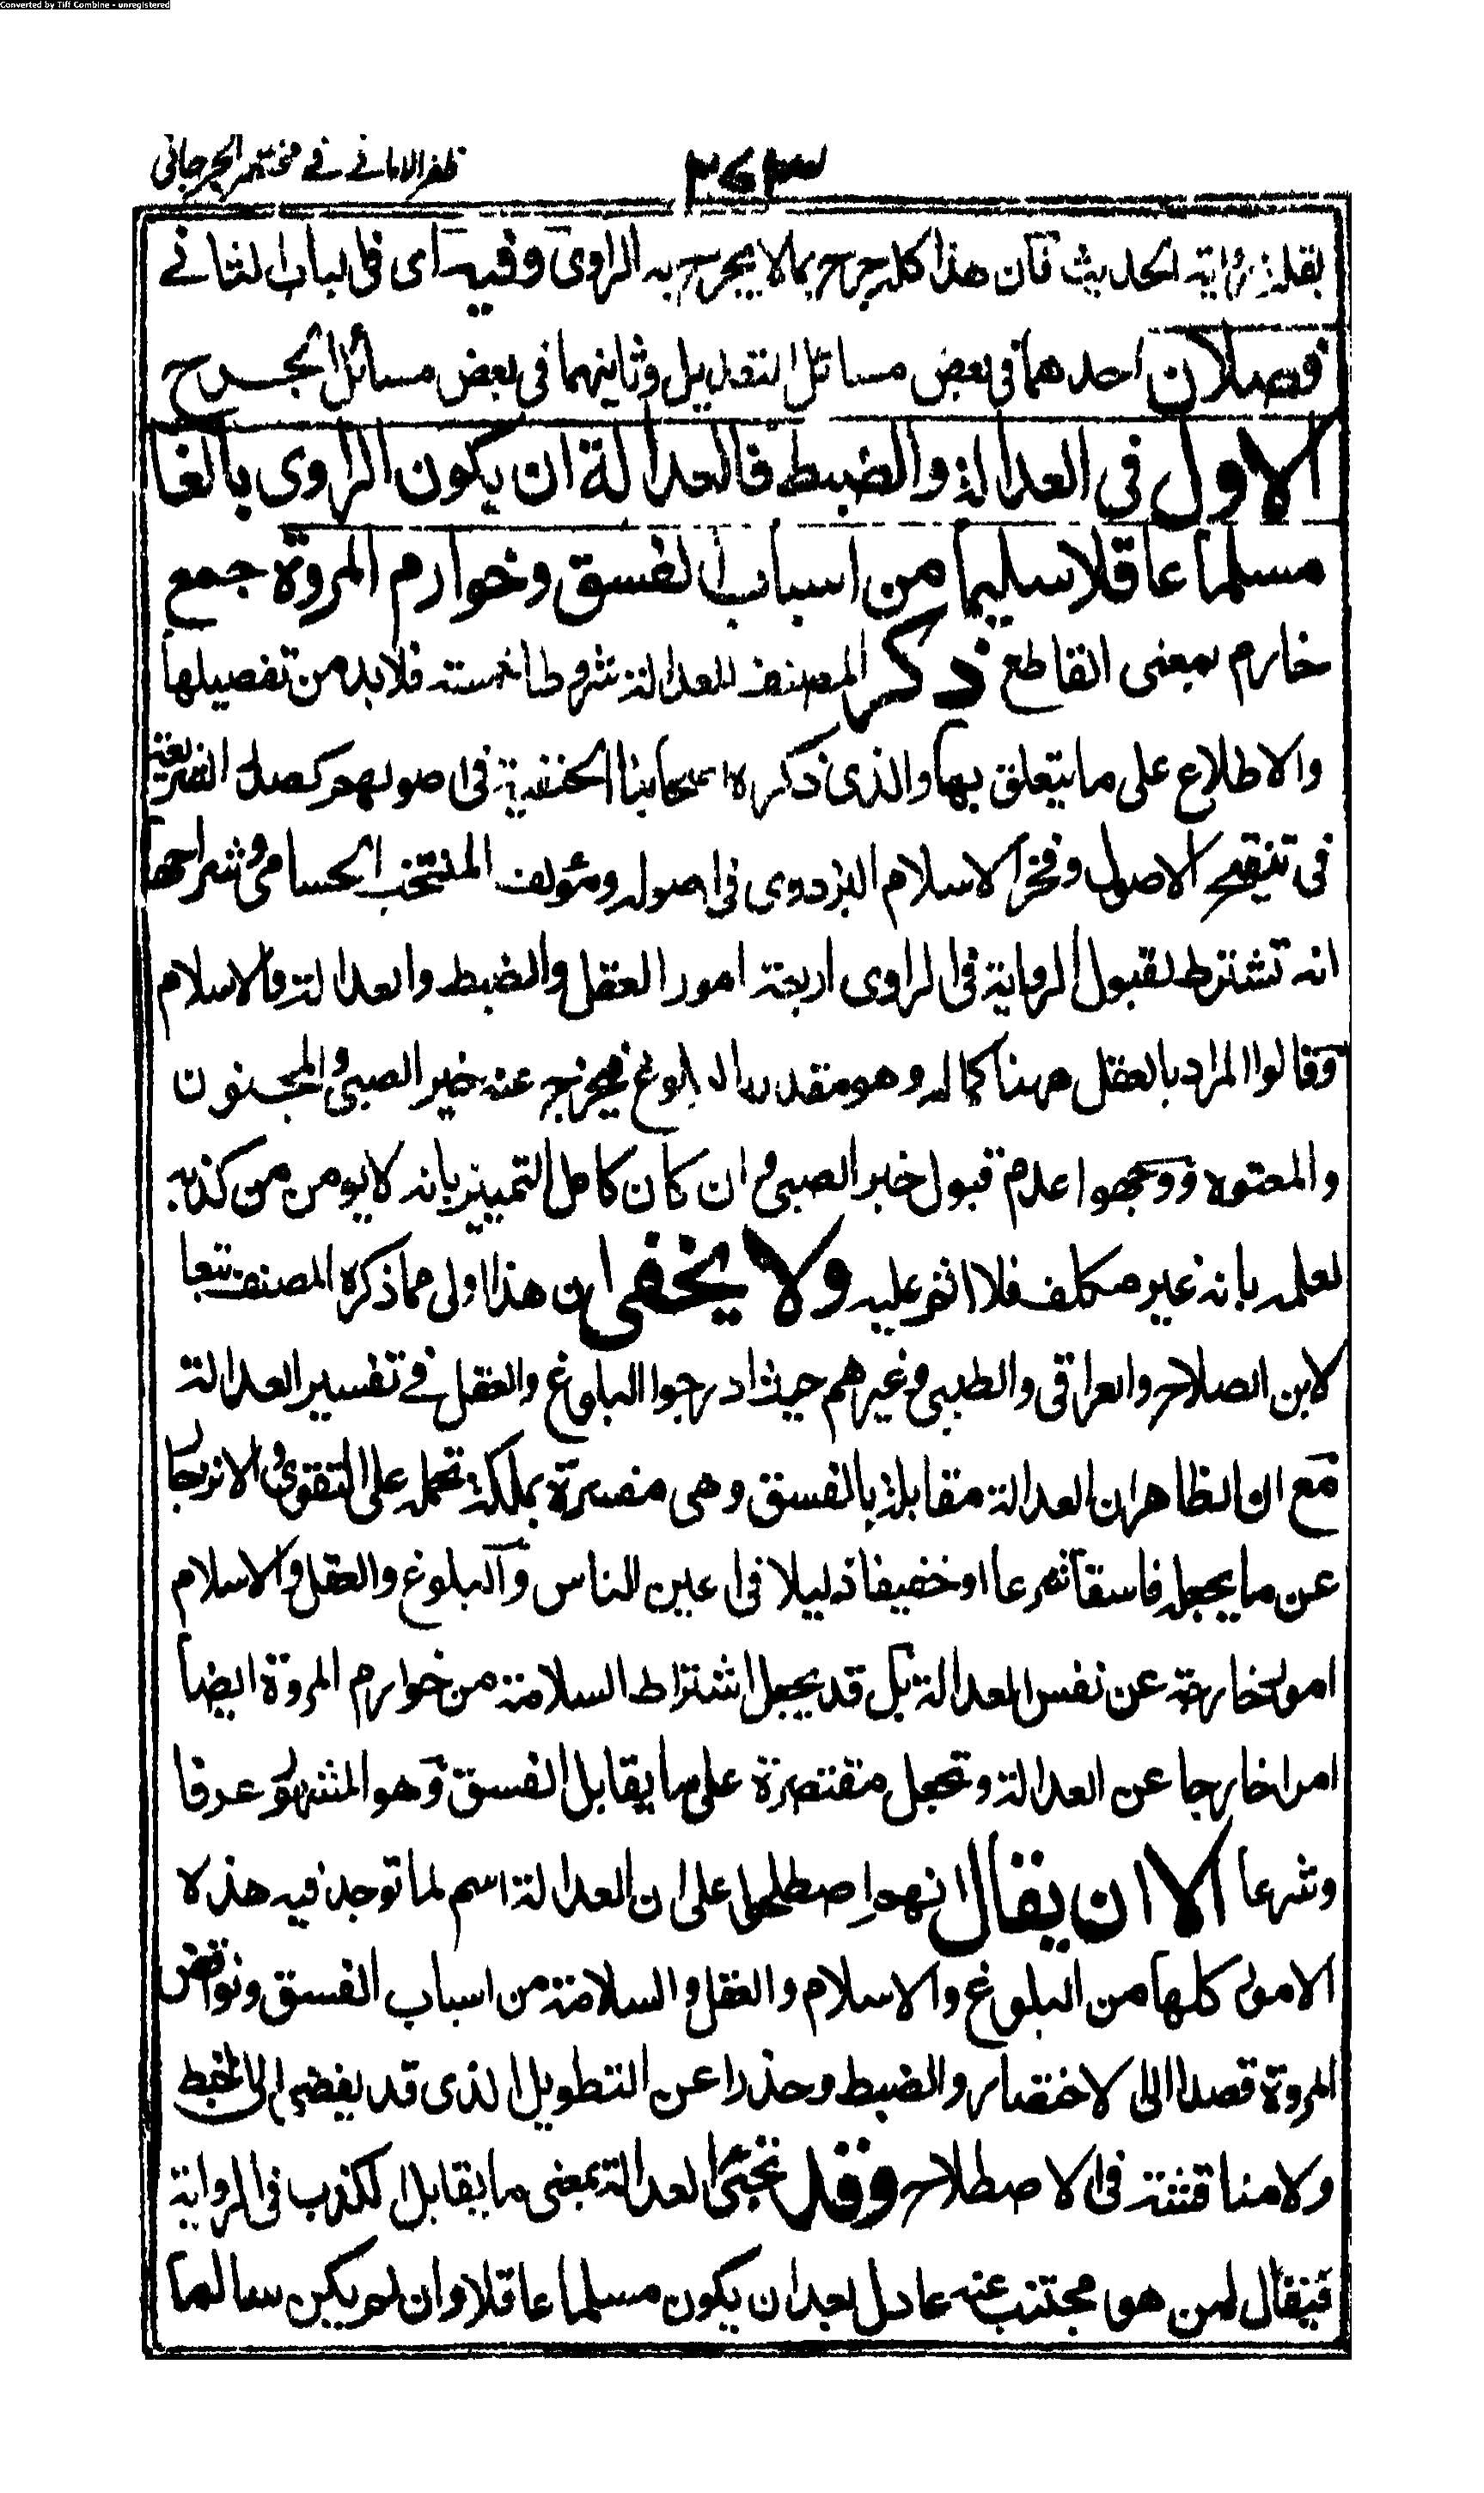 Converted by Tiff Combine - unregistered
ظفر الامانے فے مختصر الجرجانی
۲۶۳
بقلة رواية الحديث فان هذا كله جرح بما لا يجرح به الراوى وفيه اى فى الباب الثانے
فصلان احدهما فى بعض مسائل التعديل وثانيهما فى بعض مسائل الجرح
الاول فى العدالة والضبط فالعدالة ان يكون الراوى بالغا
مسلما عاقلا سليما من اسباب الفسق وخوارم المروة جمع
خارم بمعنى القاطع ذكر المصنف للعدالة شروطا خمسة فلابد من تفصيلها
والاطلاع على ما يتعلق بها والذى ذكره اصحابنا الحنفية فى اصولهم كصدر الشريعة
فى تنقيح الاصول وفخر الاسلام البزدوى فى اصوله ومؤلف المنتخب الحسامى وشراحها
انه تشترط لقبول الرواية فى الراوى اربعة امور العقل والضبط والعدالة والاسلام
وقالوا المراد بالعقل ههنا كماله وهو مقدر بالبلوغ فيخرج عنه خبر الصبى والمجنون
والمعتوه ووجهوا عدم قبول خبر الصبى وان كان كامل التمييز بانه لا يومن من كذبه
لعلمه بانه غير مكلف فلا اثم عليه ولا يخفى ان هذا اولى مما ذكره المصنف تبعا
لابن الصلاح والعراقى والطيبى وغيرهم حيث ادرجوا البلوغ والعقل فے تفسير العدالة
مع ان الظاهر ان العدالة مقابلة بالفسق وهى مفسرة بملكة تحمله على التقوى والانزجار
عن ما يجعله فاسقا شرعا او خفيفا ذليلا فى اعين الناس والبلوغ والعقل والاسلام
امور خارجة عن نفس العدالة بل قد يجعل اشتراط السلامة من خوارم المروة ايضا
امرا خارجا عن العدالة وتجعل مقتصرة على ما يقابل الفسق وهو المشهور عرفا
وشرعا الا ان يقال انهم اصطلحوا على ان العدالة اسم لما توجد فيه هذه
الامور كلها من البلوغ والاسلام والعقل والسلامة من اسباب الفسق ونواقض
المروة قصدا الى الاختصار والضبط وحذرا عن التطويل الذى قد يفضى الى الخبط
ولا مناقشة فى الاصطلاح وقد تجئ العدالة بمعنى ما يقابل الكذب فى الرواية
فيقال لمن هو مجتنب عنه عادل بعد ان يكون مسلما عاقلا وان لم يكن سالما